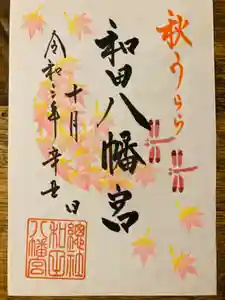 秋うらら
和田八幡宮
令和二年十月廿七日
總社
和田
八幡宮